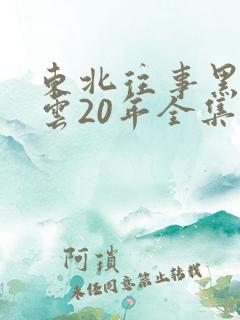 東北往事黑
雲20年全集
阿瑣
未任同意禁止转载